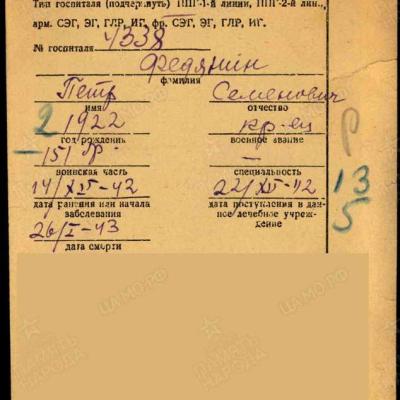 Тип госпиталя (подчеркнуть) ППГ-1-й линии, ППГ-2-й лин.,
арм. СЭГ, ЭГ, ГЛР, ИГ, фр. СЭГ, ЭГ, ГЛР, ИГ.
№ госпиталя 4338
Федянин
фамилия
Петр Семенович
имя отчество
1922 кр-ец
год рождения военное звание
151 —
воинская часть специальность
14/XII-42 22/XII-42
дата ранения или начала заболевания дата поступления в данное лечебное учреждение
26/I-43
дата смерти
2
Р
13
5
ПАМЯТЬ НАРОДА
ЦАМО.РФ